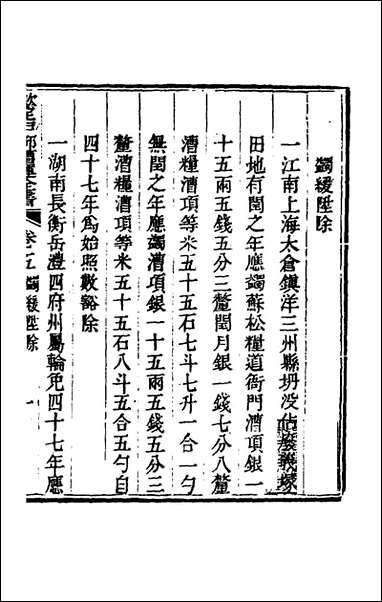 蠲緩陞除
一江南上海太倉鎮洋三州縣坍没佔廢義塚
田地有閏之年應蠲蘇松糧道衙門漕項銀一
十五兩五錢五分三釐閏月銀一錢七分八釐
漕糧漕項等米五十五石七斗七升一合一勺
無閏之年應蠲漕項銀一十五兩五錢五分三
釐漕糧漕項等米五十五石八斗五合五勺自
四十七年爲始照數豁除
一湖南長衡岳澧四府州屬輪免四十七年應
卷十五 蠲緩陞除 一